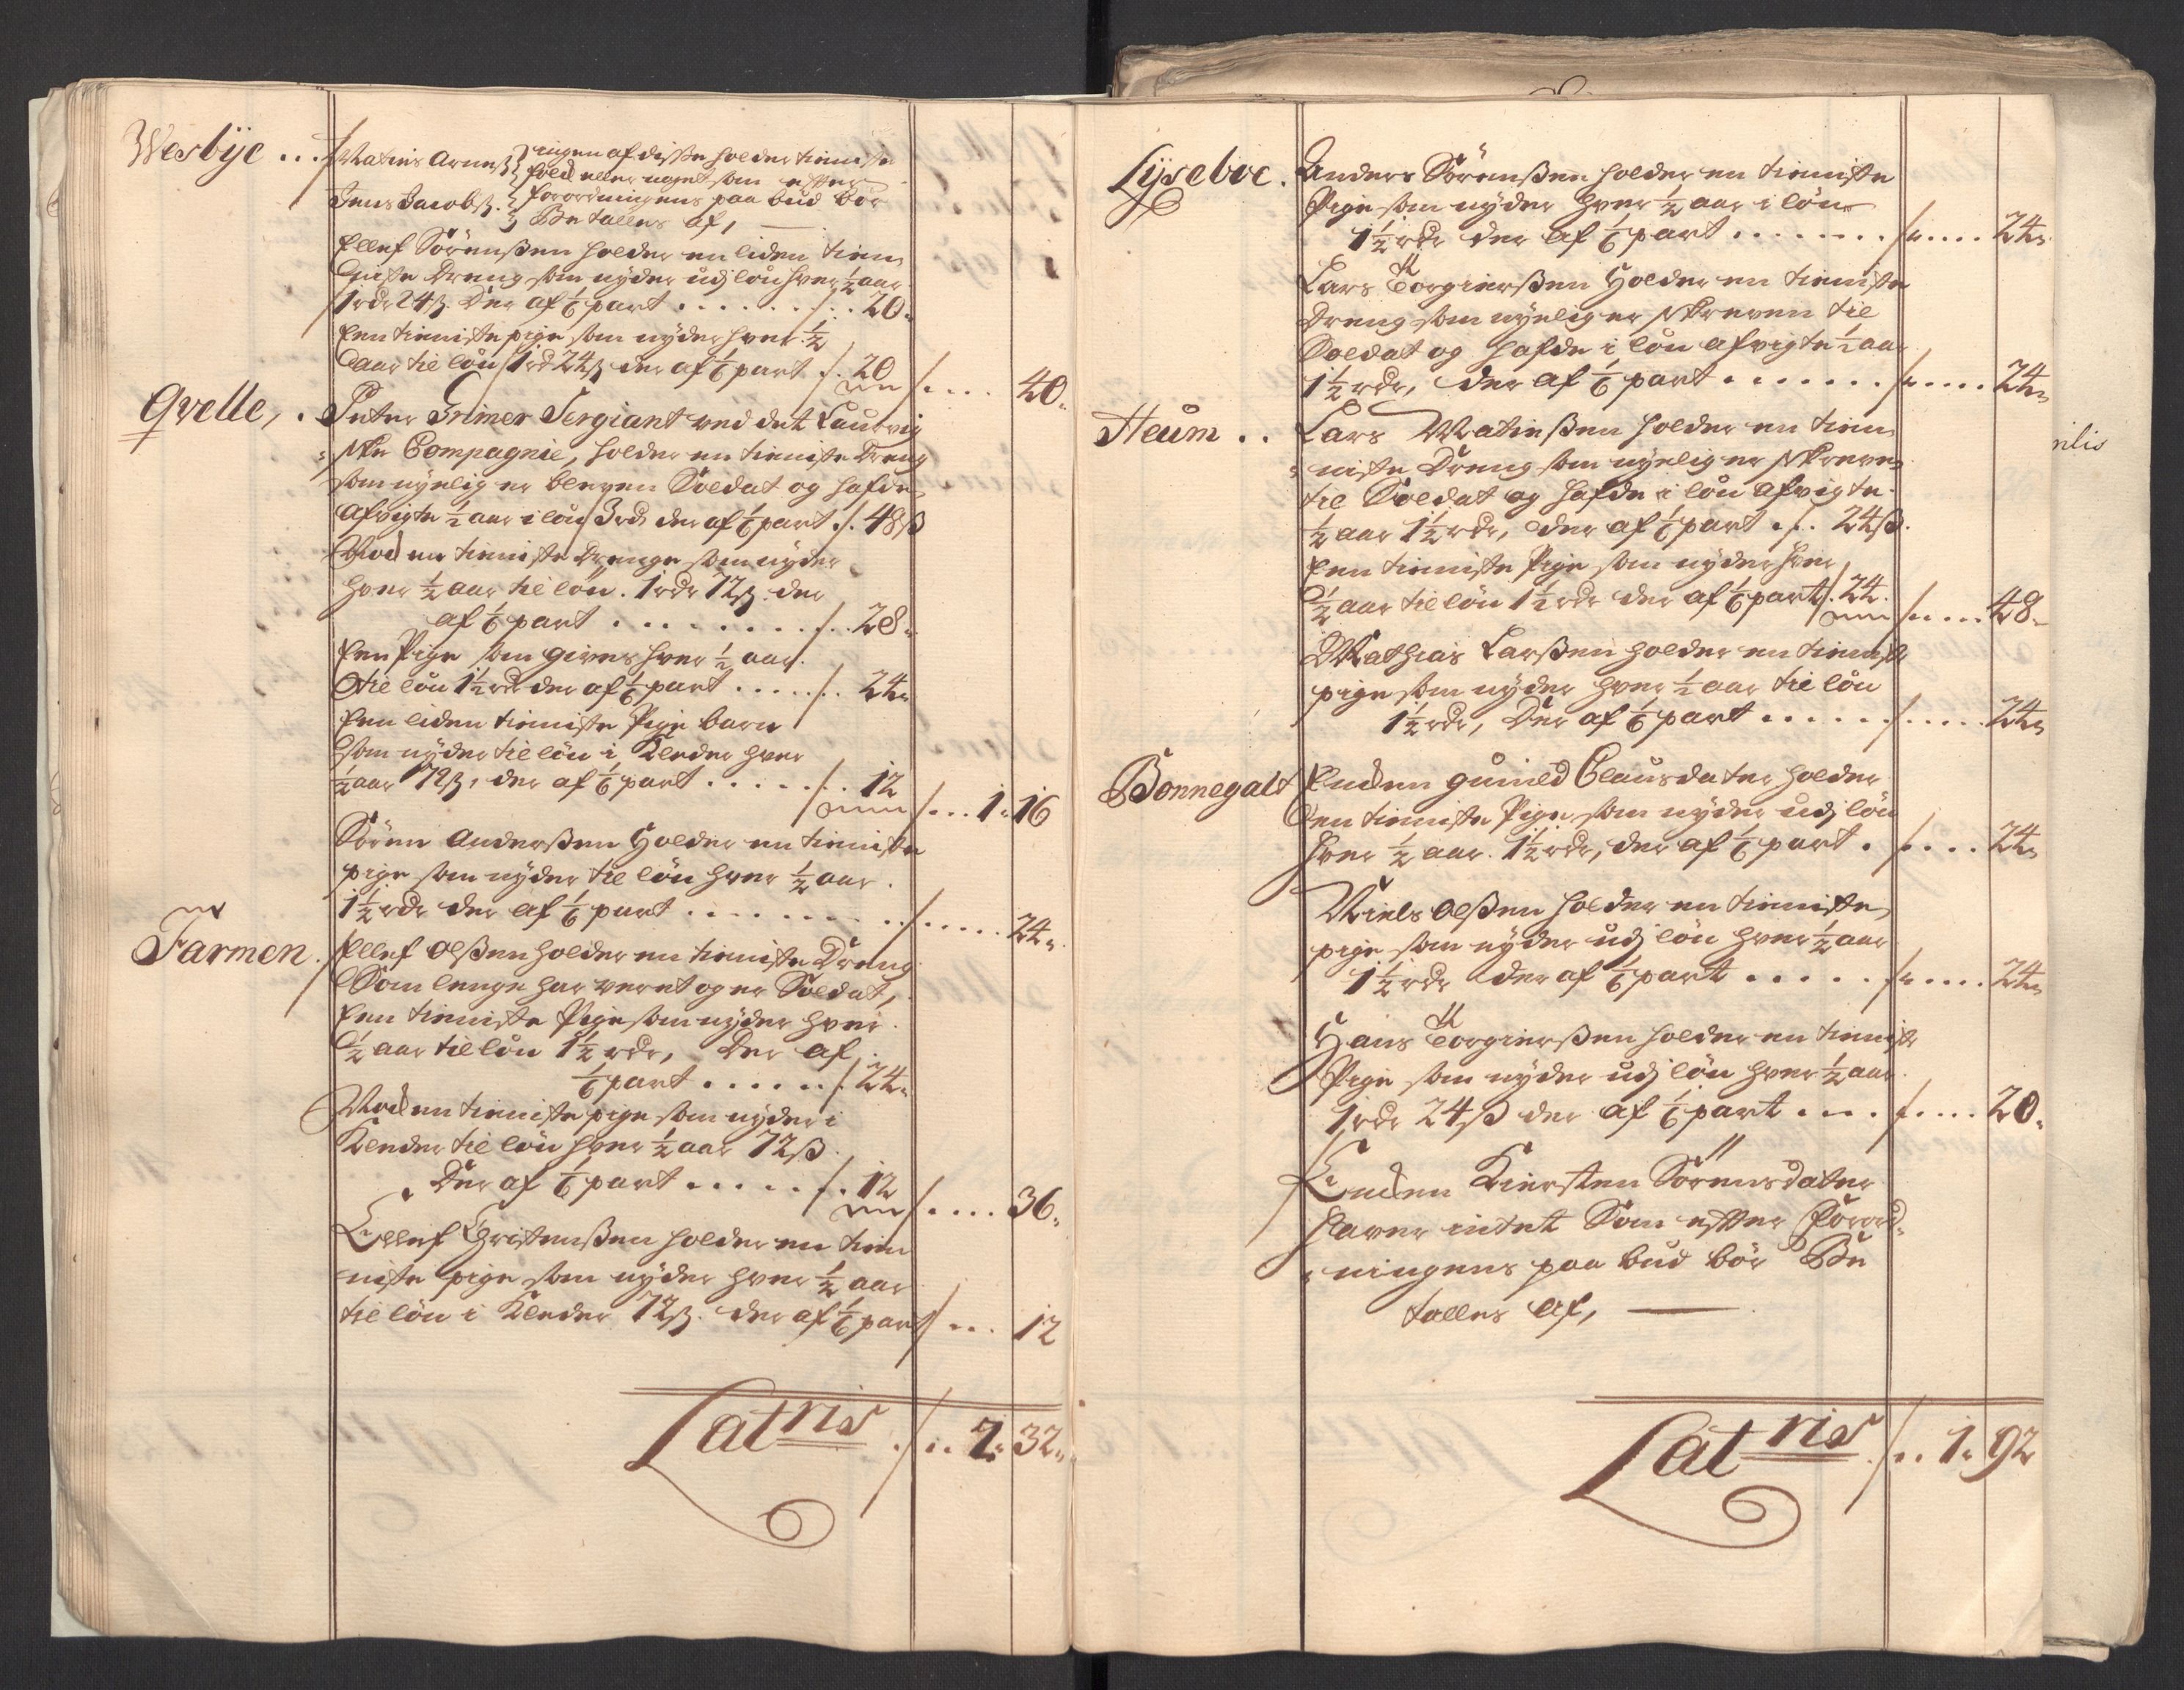 Wesbÿe ... Matis Arneß. } ingen af disse holder tieniste
folck eller noget som effter
Jens Jacobß. } forordningens paa bud bör
Betalles af, —
Ellef Sörenßen holder en liden tien
niste Dreng som nyder udj lön hver ½ aar
1 rdr 24 ß. Der af 1/6 part . . . . . . /. . . 20„
Een tieniste pige som nyder hver ½
aar til lön 1 rd 24 ß der af 1/6 part ./. 20
/. . . . 40„
Qvelle, . Peter Grimer Sergiant ved det Laurvig
„ske Compagnie, holder en tieniste Dreng
som nyelig er bleven Soldat og hafde
afvigte ½ aar i lön 3 rd der af 1/6 part ./. 48 ß
Nock en tieniste Drenge som nyder
hver ½ aar til lön. 1 rdr 72 ß. der
af 1/6 part . . . . . . . . . /. . 28„
Een Pige som gives hver ½ aar.
til lön 1½ rdr der af 1/6 part . . . . . /. . 24„
Een liden tieniste Pige barn
som nyder til lön i Kleder hver
½ aar 72 ß, der af 1/6 part . . . . . . /. . 12
/. . . 1„ 16
Sören Anderßen Holder en tieniste
pige som nyder til lön hver ½ aar.
1½ rdr der af 1/6 part . . . . . . . . . . /. . . . . 24„
Farmen. Ellef Olßen holder en tieniste Dreng
Som lenge har veret og er Soldat,
Een tieniste Pige som nyder hver
½ aar til lön 1½ rdr, Der af
1/6 part . . . . . . /. 24„
Nock en tieniste pige som nyder i
Kleder til lön hver ½ aar 72 ß
Der af 1/6 part . . . . . . /. . 12
/. . . . 36„
Ellef Christenßen holder en tien
niste pige som nyder hver ½ aar
til lön i Kleder 72 ß. der af 1/6 part /. . . 12
Latris ./. . 2„ 32„
Lÿseboe. Anders Sörenßen holder en tieniste
Pige som nyder hver ½ aar i lön
1½ rdr der af 1/6 part . . . . . . . . /. . . . . 24„
Lars Torgierßen Holder en tieniste
Dreng som nyelig er skreven til
Soldat og hafde i lön afvigte ½ aar
1½ rdr, der af 1/6 part . . . . . . . /. . . . . 24„
Heüm . . Lars Matißen holder en tien
„niste Dreng som nyelig er skreven
til Soldat og hafde i lön afvigte
½ aar 1½ rdr, der af 1/6 part ./. . 24 ß.
Een tieniste Pige som nyder hver
½ aar til lön 1½ rdr der af 1/6 part /. 24.
/. . . . . 48„
Mathias Larßen holder en tieniste
pige som nyder hver ½ aar til lön
1½ rdr, Der af 1/6 part . . . . . . /. . . . . 24„
Bonnegalt Encken Gunild Clausdater holder
en tieniste Pige som nyder udj lön
hver ½ aar. 1½ rdr, der af 1/6 part . /. . . . 24„
Niels Olßen holder en tieniste
pige som nyder udj lön hver ½ aar
1½ rdr der af 1/6 part . . . . . /. . . . . 24„
Hans Torgierßen holder en tieniste
Pige som nyder udj lön hver ½ aar.
1 rdr 24 ß der af 1/6 part . . . . /. . . . . 20„
Encken Kiersten Sörensdater
haver intet Som effter Forord„
„ningens paa bud bör Be
talles af, —
Latris ./. . 1„ 92